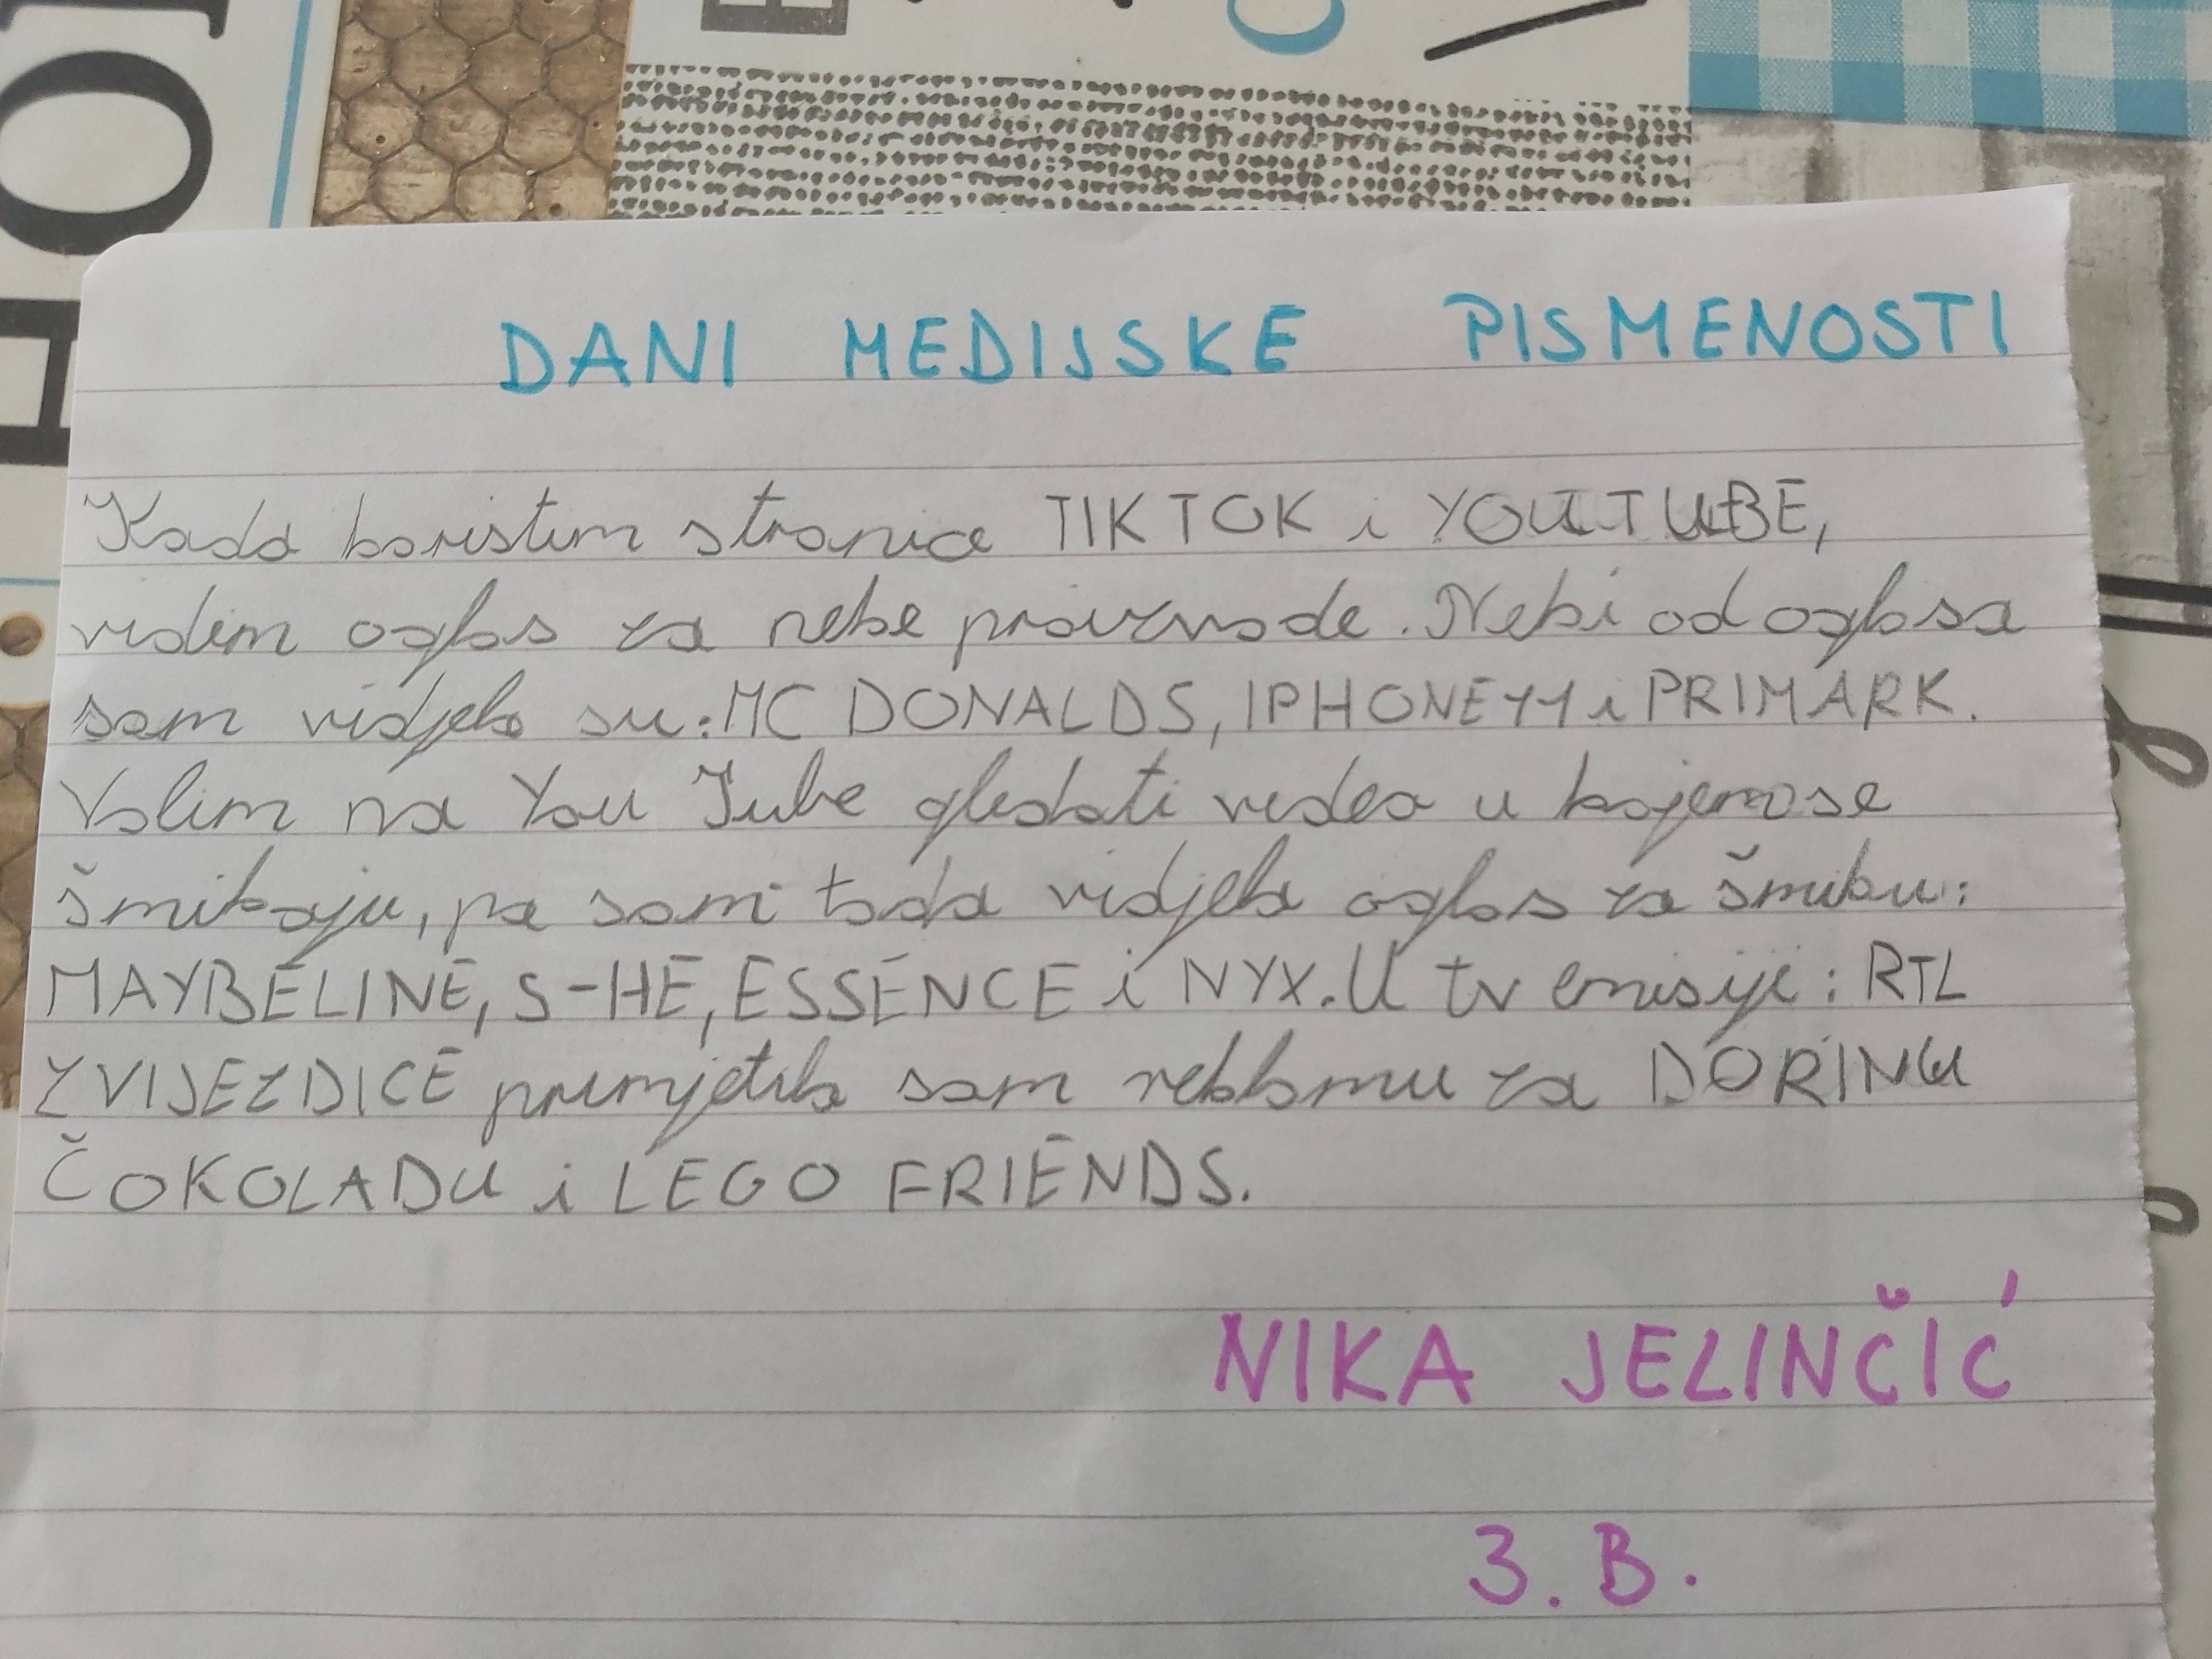 DANI MEDIJSKE PISMENOSTI
Kada koristim stranice TIKTOK i YOUTUBE,
vidim oglas za neke proizvode. Neki od oglasa
sam vidjela su: MC DONALDS, IPHONE 11 i PRIMARK.
Volim na You Tube gledati video u kojemose
šminkaju, pa sam tada vidjela oglas za šminku:
MAYBELINE, S-HE, ESSENCE i NYX. U tv emisiji: RTL
ZVIJEZDICE primjetila sam reklamu za DORINU
ČOKOLADU i LEGO FRIENDS.
NIKA JELINČIĆ
3. B.